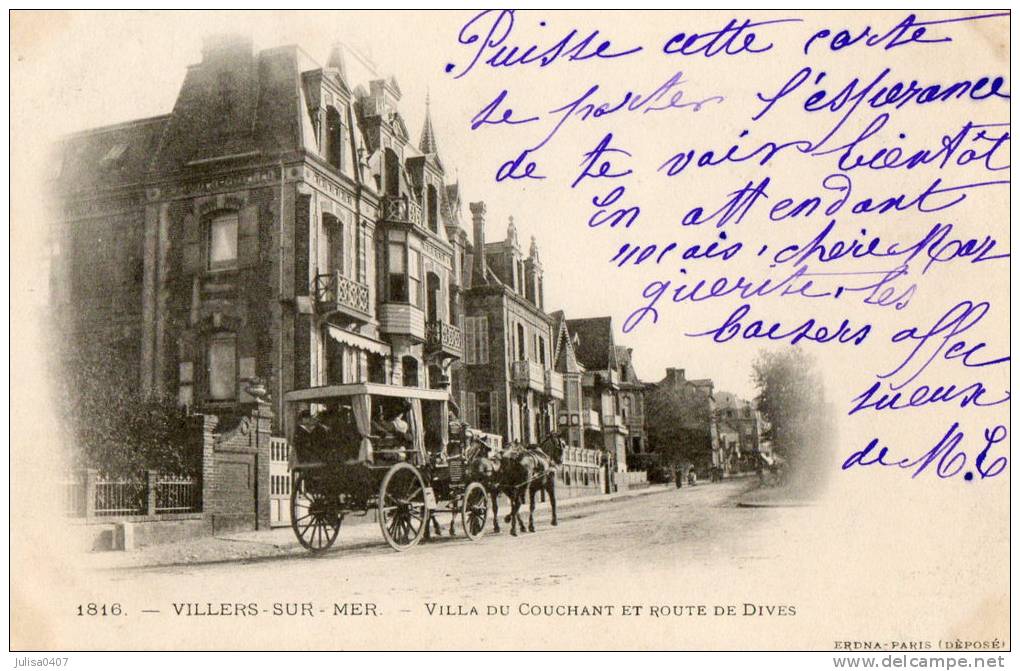 Puisse cette carte
te porter l'espérance
de te voir bientôt
En attendant
reçais, chère Mar
guerite, les
baisers affec
tueux
de M.L
1816. — VILLERS-SUR-MER. — VILLA DU COUCHANT ET ROUTE DE DIVES
ERDNA-PARIS (DÉPOSÉ)
julisa0407
www.delcampe.net